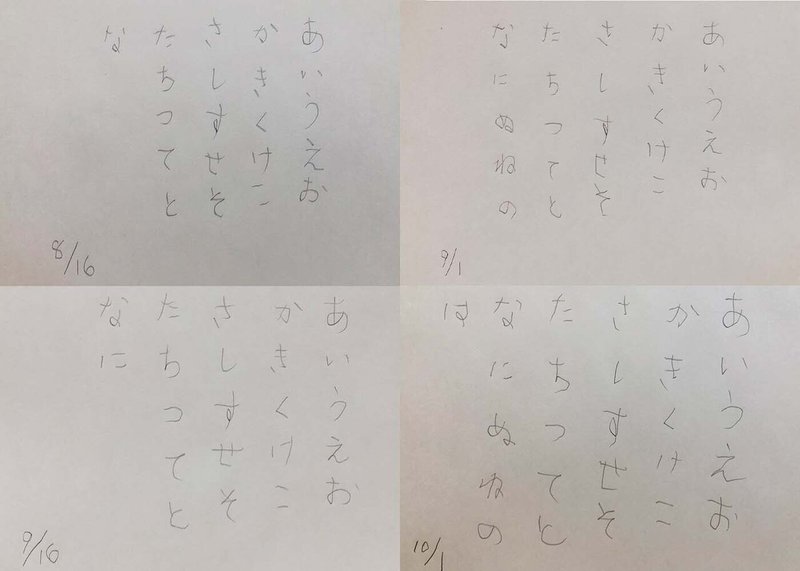 あいうえお
かきくけこ
さしすせそ
たちつてと
な
8/16
あいうえお
かきくけこ
さしすせそ
たちつてと
なにぬねの
9/1
あいうえお
かきくけこ
さしすせそ
たちつてと
なに
9/16
あいうえお
かきくけこ
さしすせそ
たちつてと
なにぬねの
は
10/1